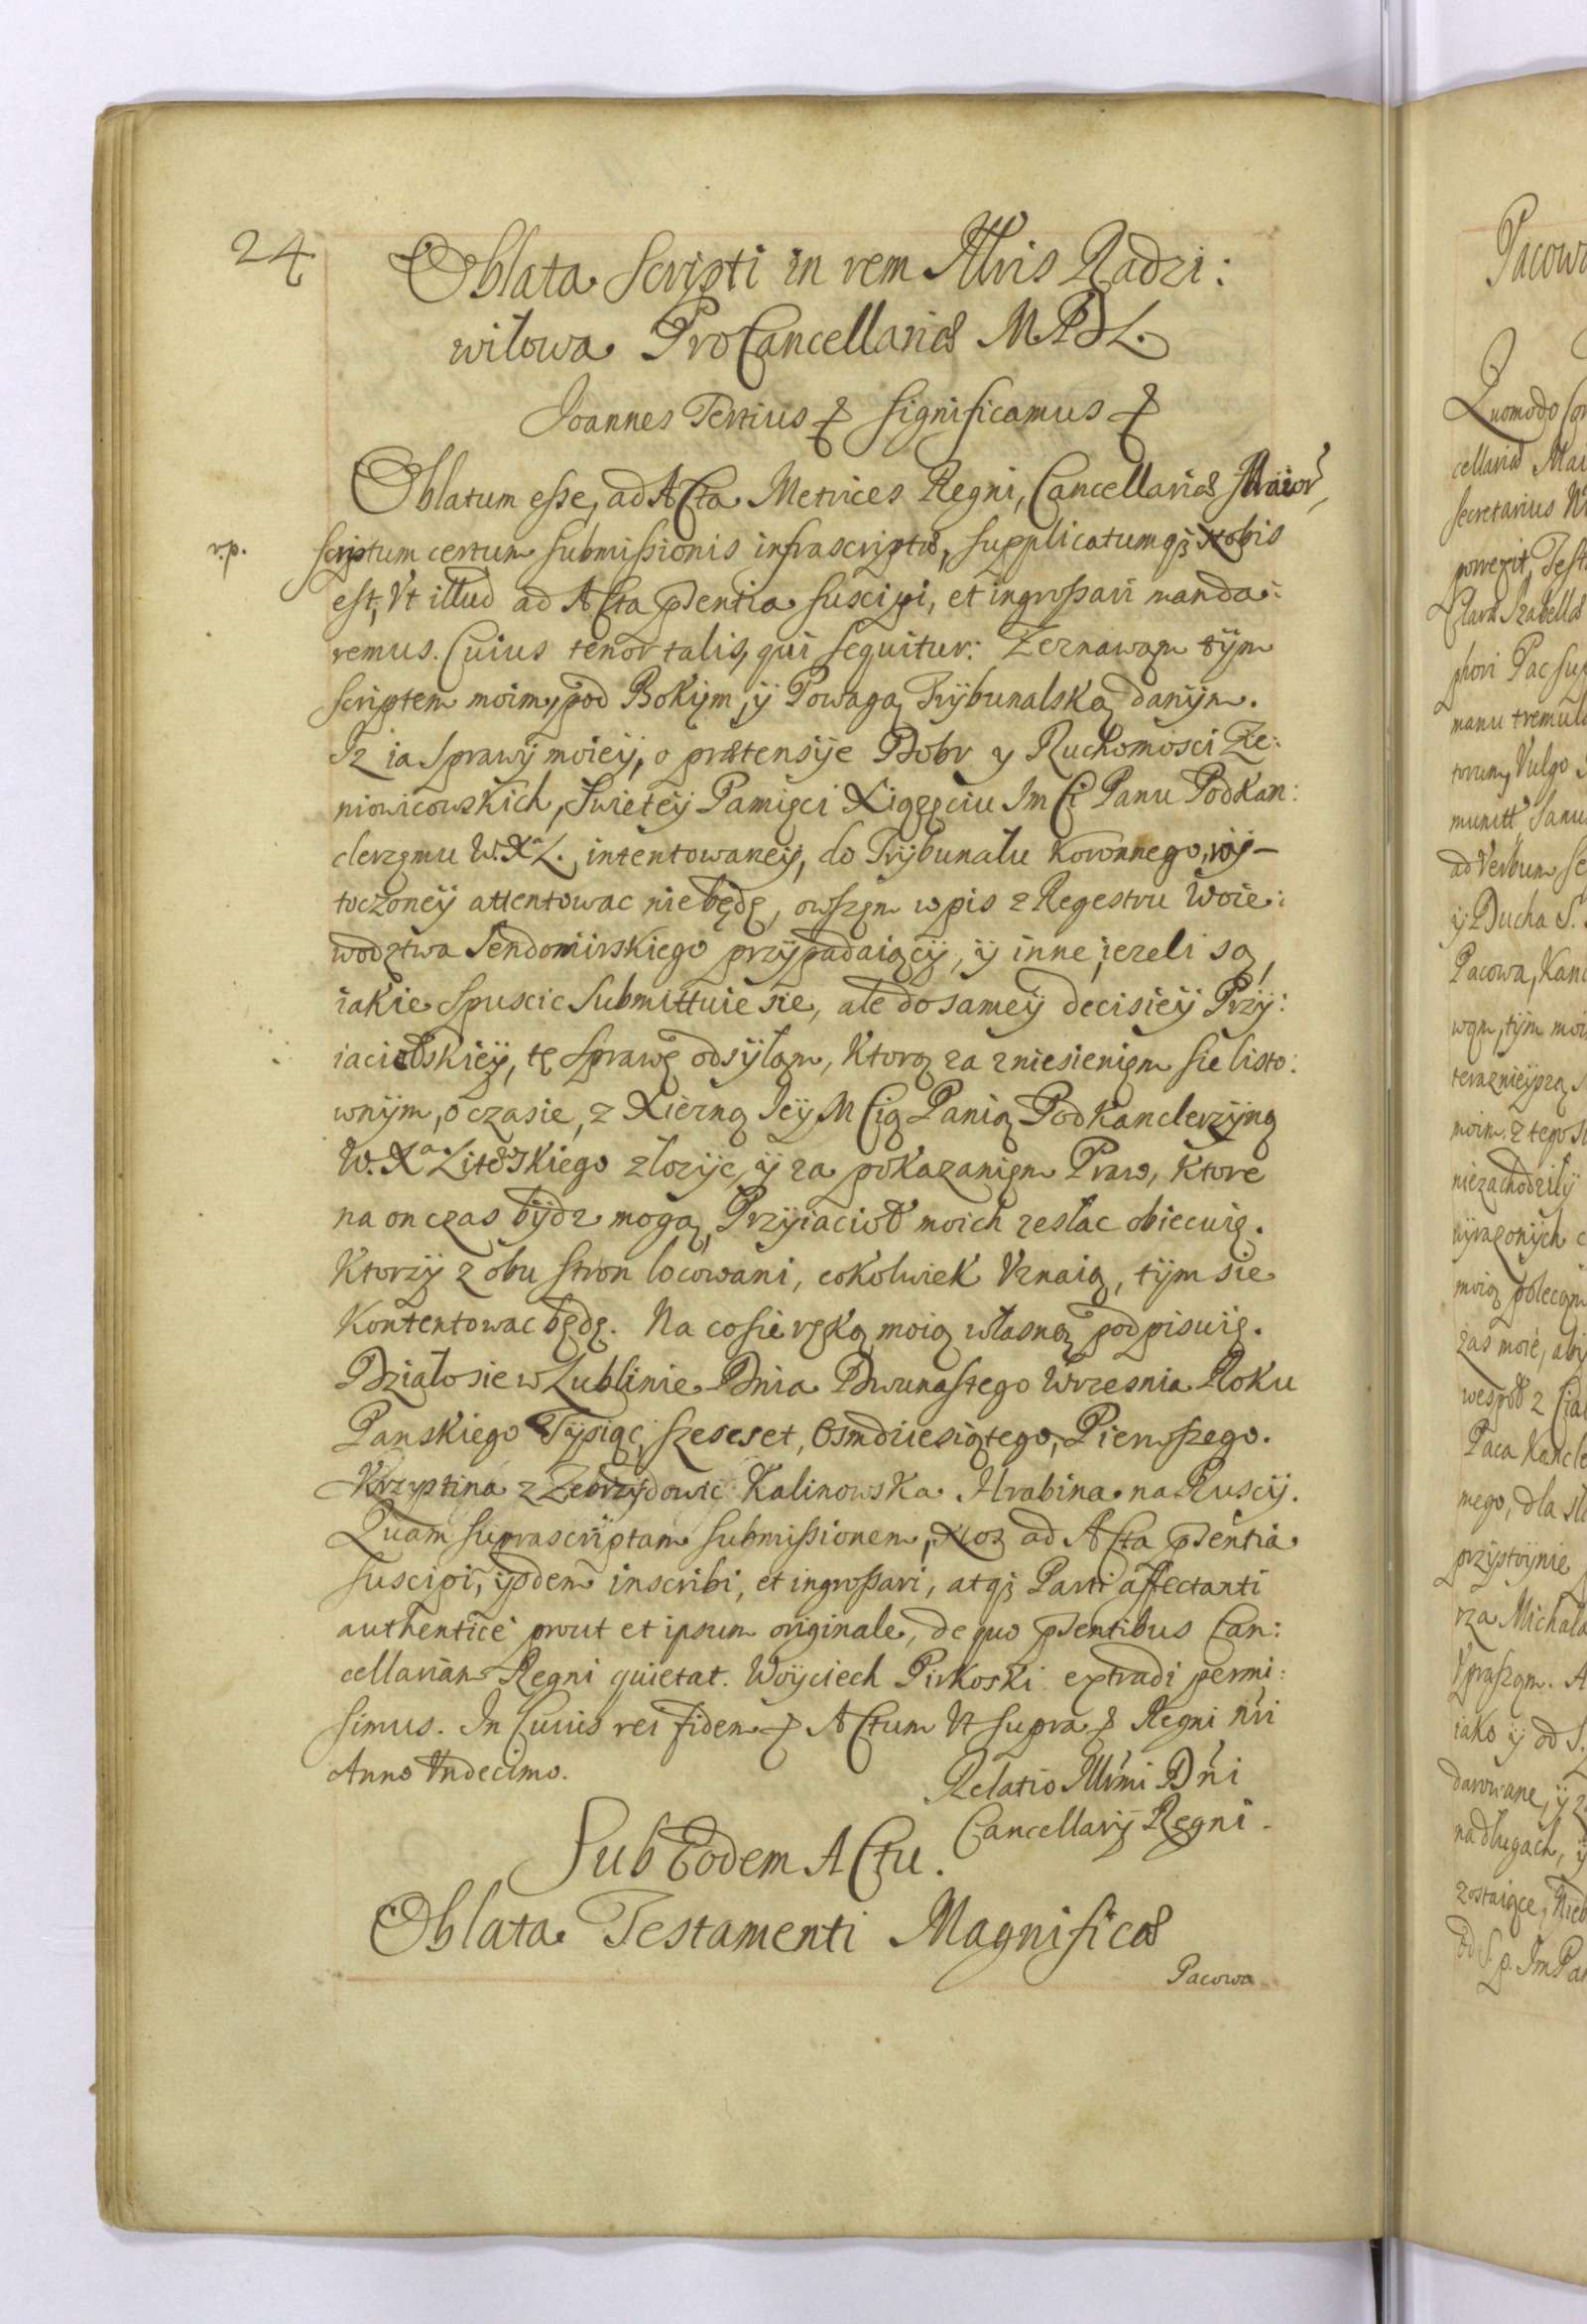 24
Oblata Scripti in rem Illris Radzi:
wiłowa ProCancellariæ M. D. L.
Joannes Tertius & significamus &
Oblatum esse, ad Acta Metrices Regni, Cancellariæ Maior,
r.p.
scriptum certum submissionis infrascriptæ, supplicatumqȝ Nobis
est, Vt illud ad Acta pntia suscipi, et ingrossari manda:
remus. Cuius tenor talis, qui sequitur: Zeznawam tÿm
scriptem moim, pod Bokiÿm, ÿ Powagą Trÿbunalską danÿm.
Iz ia Sprawÿ moieÿ, o prætensÿe Dobr y Ruchomosci Ze:
niowicowskich, Swieteÿ Pamięci Xiązęciu Im Ci Panu Podkan:
clerzęmu W. Xa L. intentowaneÿ, do Trÿbunału Koronnego, wÿ-
toczoneÿ attentowac nie będę, owszęm wpis z Regestru Woie:
wodztwa Sendomirskiego przÿpadaiącÿ, ÿ inne, iezeli są,
iakie Spuscic Submittuie sie, ale do sameÿ decisieÿ Przÿ:
iacielskieÿ, tę Sprawę odsÿłam, Ktorą za zniesienięm sie listo:
wnÿm, o czasie, z Xiezną Jeÿ M Cią Panią Podkanclerzÿną
W. Xa Litewskiego złozÿc, ÿ za pokazanięm Praw, Ktore
na on czas bÿdz mogą, Przÿiacioł moich zesłac obiecuię.
Ktorzÿ z obu stron locowani, cokolwiek Vznaią, tÿm sie
Kontentowac będę. Na co sie ręką moią własną podpisuię.
Działo sie w Lublinie Dnia Dwunastego Wrzesnia Roku
Panskiego Tÿsiąc, szescset, Osmdziesiątego, Pierwszego.
Krzystina z Zebrzÿdowic Kalinowska Hrabina na Huscÿ.
Quam suprascriptam submissionem, Nos ad Acta pntia
suscipi, ijsdem inscribi, et ingrossari, atqȝ Parti affectanti
authentice prout et ipsum originale, de quo pntibus Can:
cellariam Regni quietat. Woÿciech Pirkoski extradi permi:
simus. In Cuius rei fidem & Actum Vt supra & Regni nri
Anno Vndecimo.
Relatio Illmi Dni
Cancellarÿ Regni.
Sub Eodem Actu.
Oblata Testamenti Magnificæ
Pacowa